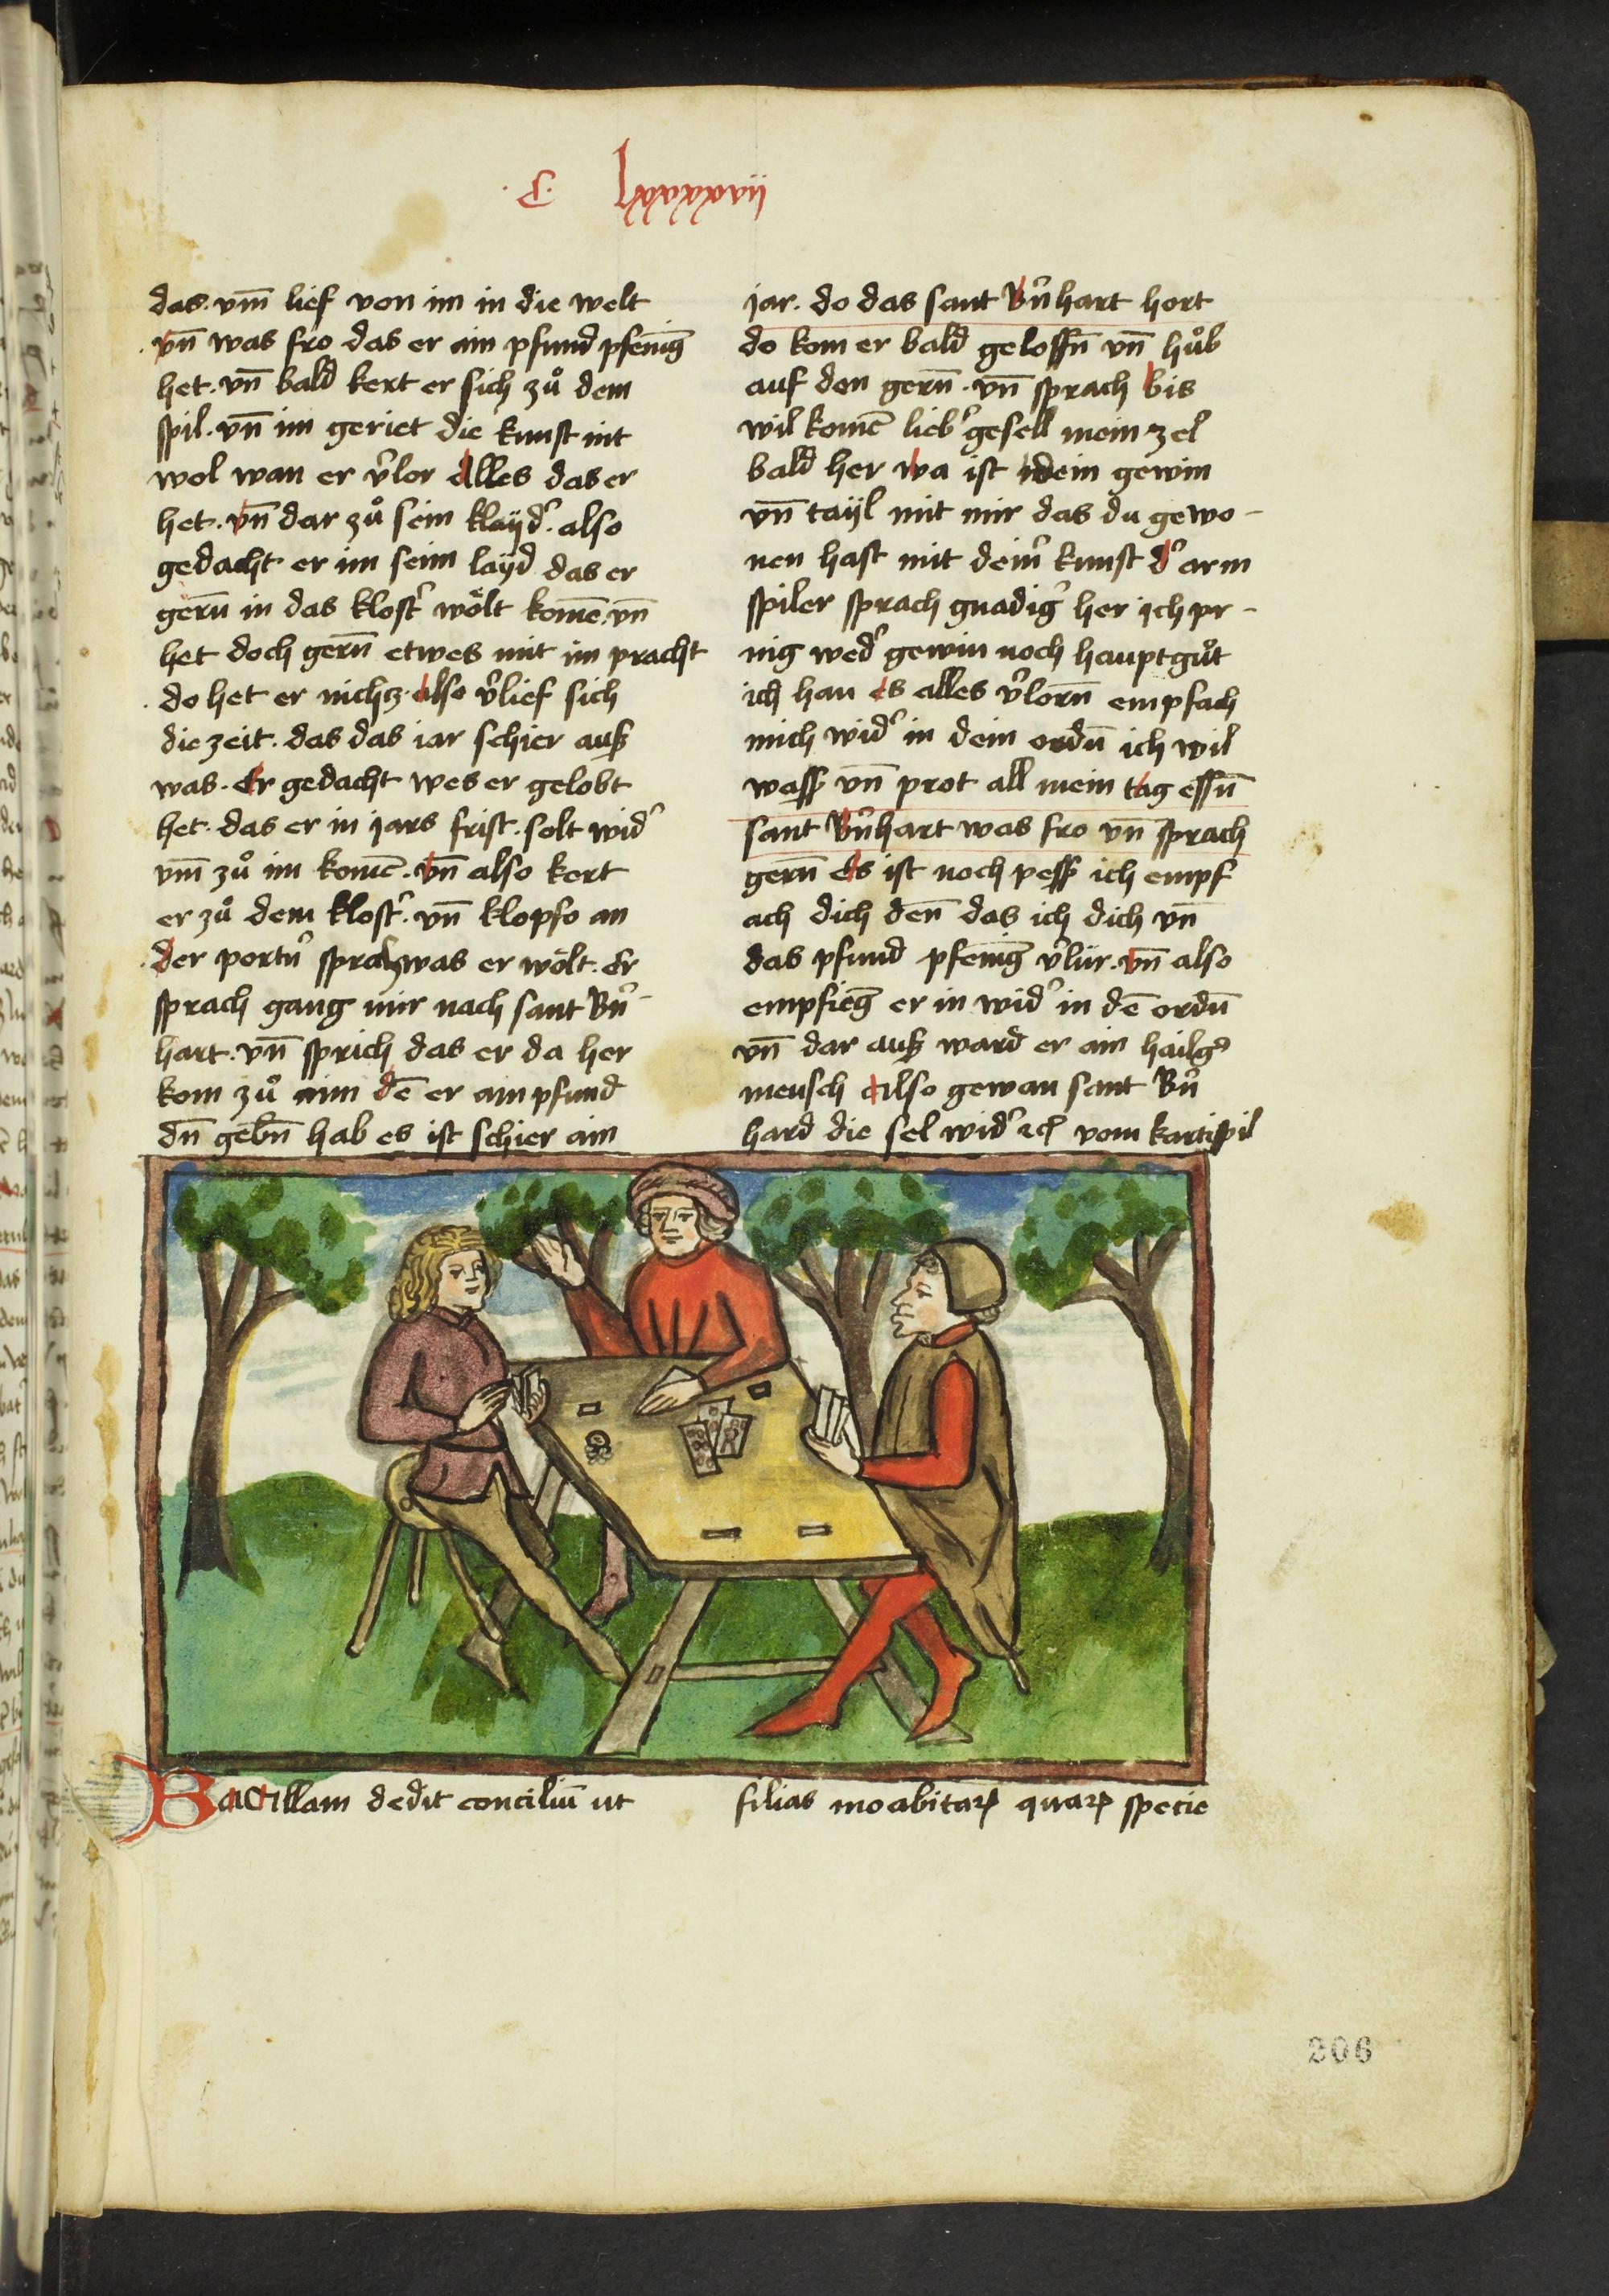 ·C· lxxxxvii
das. vm̄ lief von im in die welt
vn̄ was fro das er ain pfund pfenīg
het. vn̄ bald kert er sich zů dem
spil. vn̄ im geriet die kunst nit
wol wan er v̉lor alles das er
het. vn̄ dar zů sein klayd̉. also
gedacht er im seim layd das er
gern̄ in das klost̉ wölt komē. vn̄
het doch gern̄ etwes mit im pracht
do het er nichz. also v̉lief sich
die zeit. das das iar schier auß
was. Er gedacht wes er gelobt
het. das er in jars frist. solt wid̉
vm̄ zů im komē. vn̄ also kert
er zů dem klost̉. vn̄ klopfo an
der portn̉ sprach was er wölt. Er
sprach gang mir nach sant Bn̉-
hart. vn̄ sprich das er da her
kom zů aim dē er ain pfund
dn̄ gebn̄ hab es ist schier ain
jar. do das sant Bn̉hart hort
do kom er bald geloffn̄ vn̄ hůb
auf den gern̄. vn̄ sprach bis
wilkomē lieb̉ gesell mein zel
bald her wa ist dein gewin
vn̄ tayl mit mir das du gewo-
nen hast mit dein̉ kunst d̉ arm
spiler sprach gnadig̉ her ich pr-
nig wed̉ gewin noch hauptgůt
ich han es alles v̉lorn̄ empfach
mich wid̉ in dein ordn̄ ich wil
wasß vn̄ prot all mein tag essn̄
sant Bn̉hart was fro vn̄ sprach
gern̄ es ist noch pesß ich empf
ach dich den̄ das ich dich vn̄
das pfund pfenīg v̉lür. vn̄ also
empfieng er in wid̉ in dē ordn̄
vn̄ dar auß ward er ain hailg̉
mensch also gewan sant Bn̉
hard die sel wid̉ ꝛc̄ vom kartispil
Balaam dedit conciliū ut
filias moabitaꝝ quaꝝ specie
206